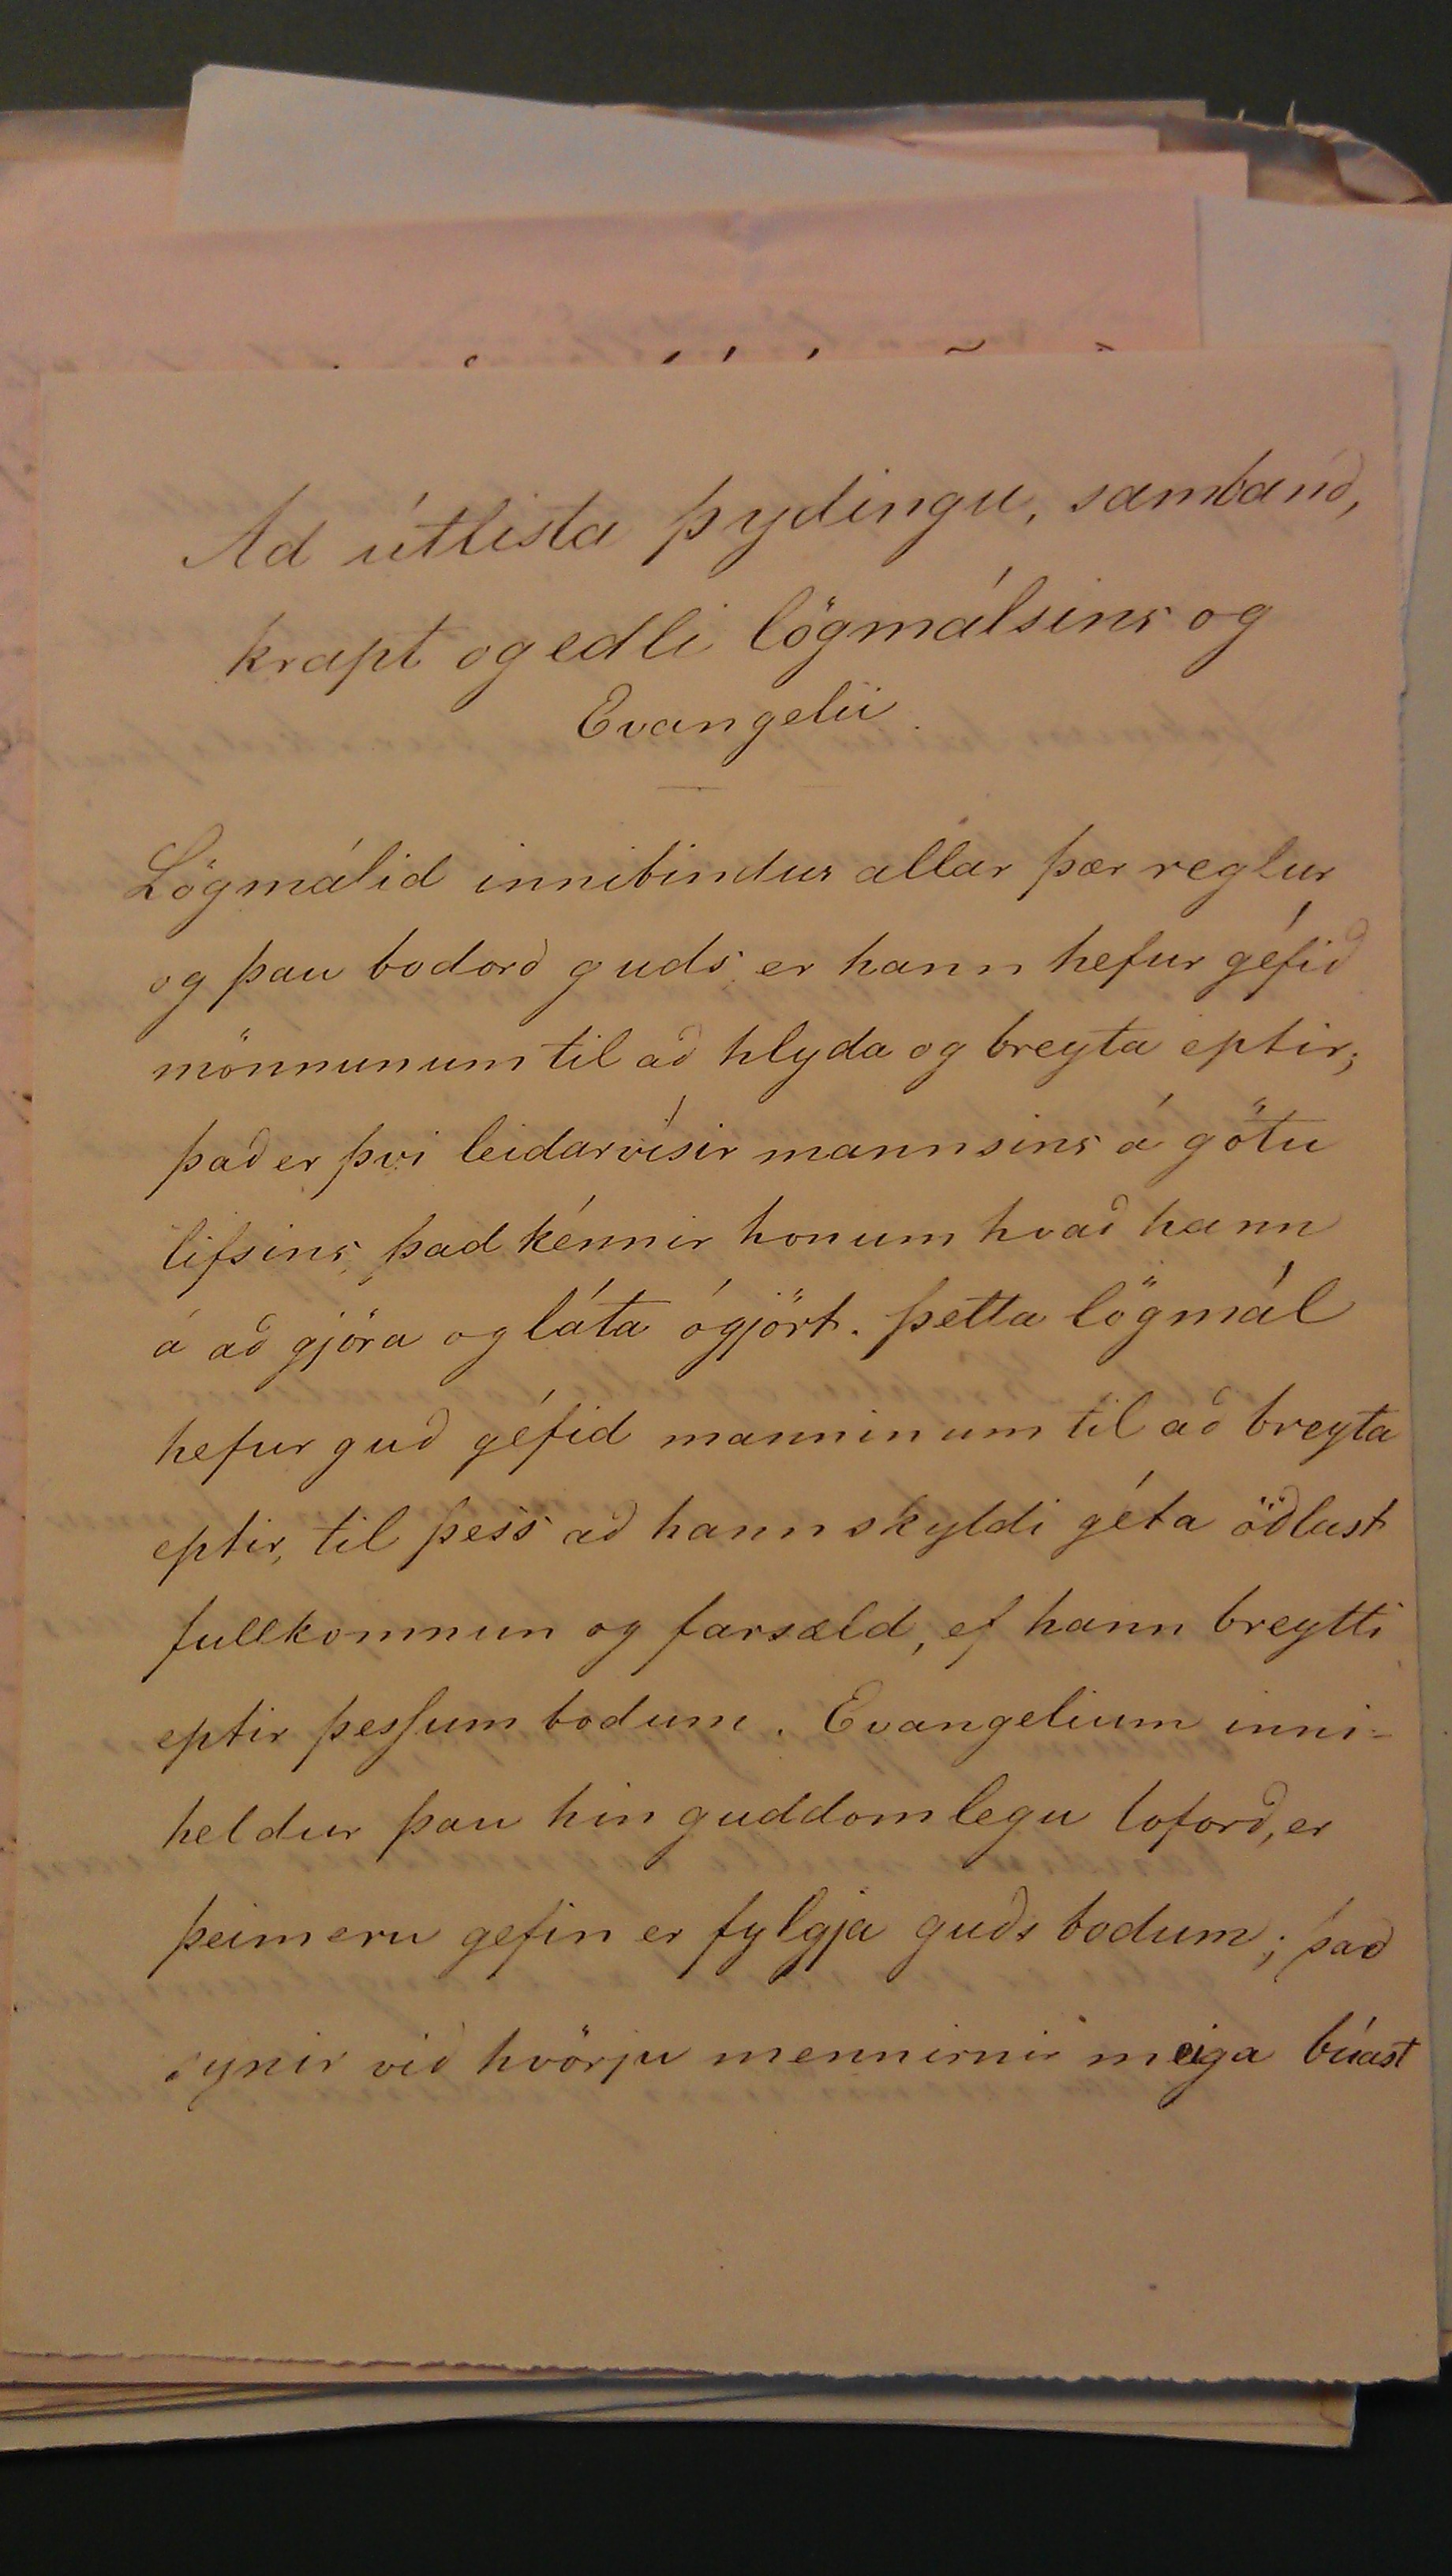 Ad útlista þydingu, sambanð,
krapt og edli lögmálsins og
Evangelii
Lögmálid innibindur allar þær reglur
og þau bodorð guds er hann hefur géfið
mönnunum til að hlyda og breyta eptir;
það er þvi leidarvísir mannsins á götu
lifsins, þad kénnir honum hvað hann
á að gjöra og láta ógjört. Þetta lögmál
hefur guð géfid manninum til að breyta
eptir, til þess að hann skyldi géta öðlast
fullkomnun og farsæld, ef hann breytti
eptir þessum bodum. Evangelium inni-
heldur þau hin guddomlegu loforð, er
þeim eru gefin er fylgja guðs bodum; það
synir við hvörju mennirnir meiga búast